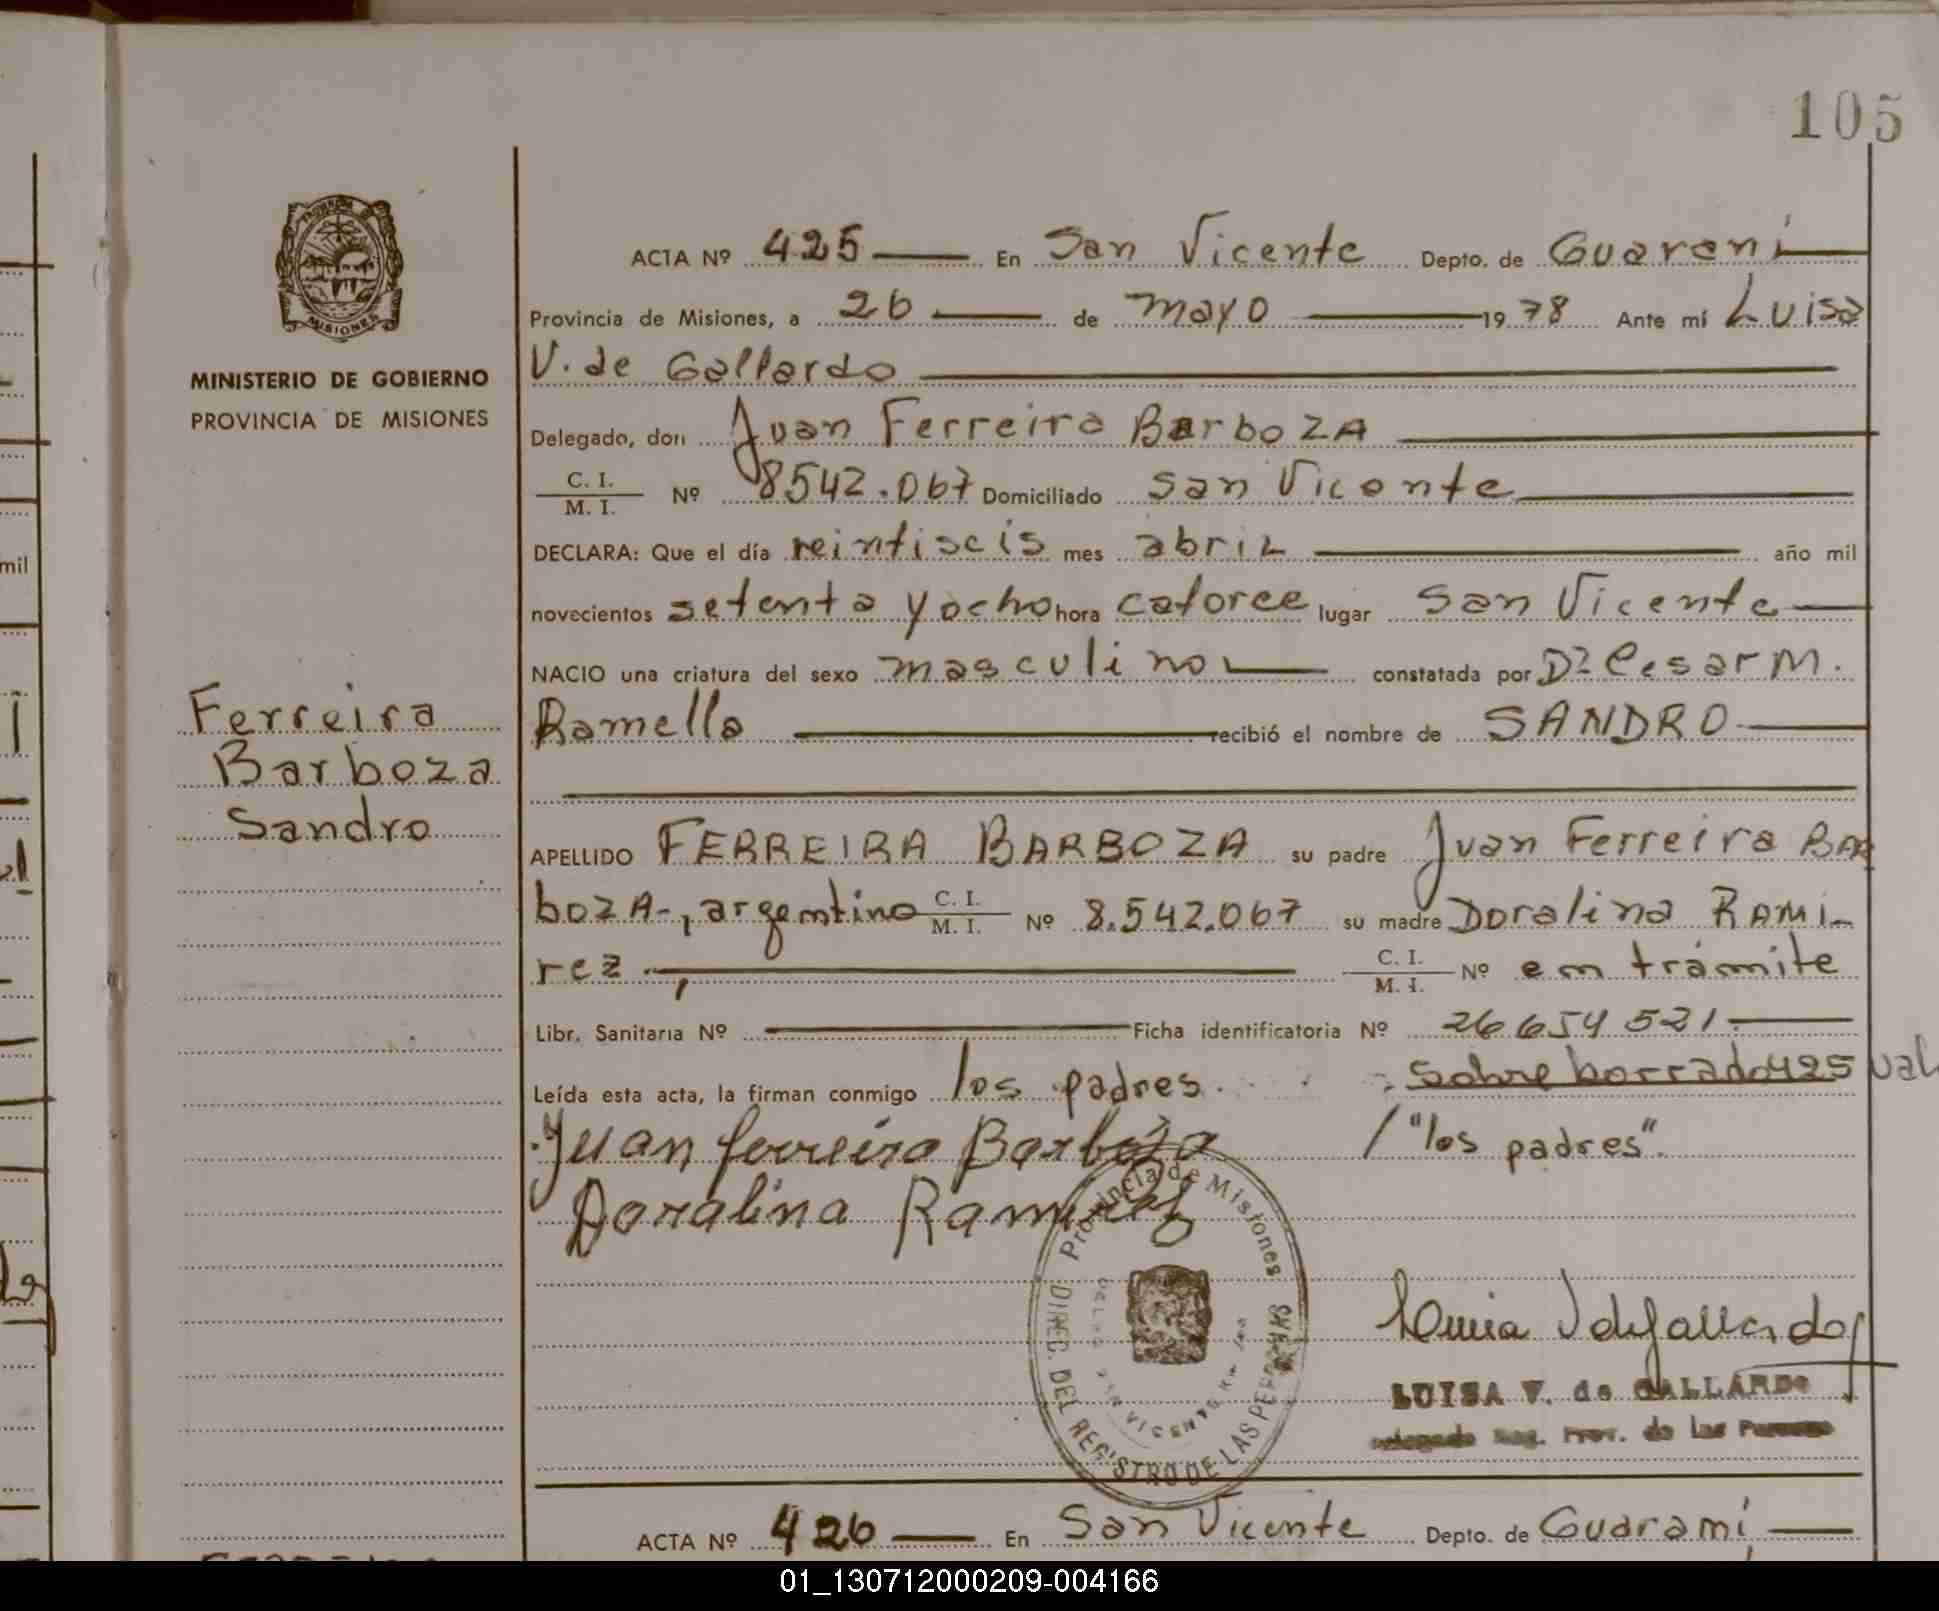 105
PROVINCIA DE
MISIONES
MINISTERIO DE GOBIERNO
PROVINCIA DE MISIONES
Ferreira
Barboza
Sandro
ACTA Nº 425 En San Vicente Depto. de Guarani
Provincia de Misiones, a 26 de mayo 1978 Ante mí Luisa
V. de Gallardo
Delegado, don Juan Ferreira Barboza
C. I.
M. I. Nº 8542.067 Domiciliado San Vicente
DECLARA: Que el día veintiseis mes abril año mil
novecientos setenta y ocho hora catorce lugar San Vicente
NACIO una criatura del sexo masculino constatada por Dr Cesar M.
Ramella recibió el nombre de SANDRO
APELLIDO FERREIRA BARBOZA su padre Juan Ferreira BAR
bozA-, argentino C. I. M. I. Nº 8.542.067 su madre Doralina RAMI-
rez.- C. I. M. I. Nº en trámite
Libr. Sanitaria Nº Ficha identificatoria Nº 26654521.-
Leída esta acta, la firman conmigo los padres. Sobre borrado 425 Val
Juan ferreira Barboza / "los padres".
Doralina Ramirez
Provincia de Misiones
DIREC. DEL REGISTRO DE LAS PERSONAS
SAN VICENTE
Luisa V de Gallardo
LUISA V. de GALLARDO
Delegado Reg. Prov. de las Personas
ACTA Nº 426 En San Vicente Depto. de Guarami
mil
01_130712000209-004166